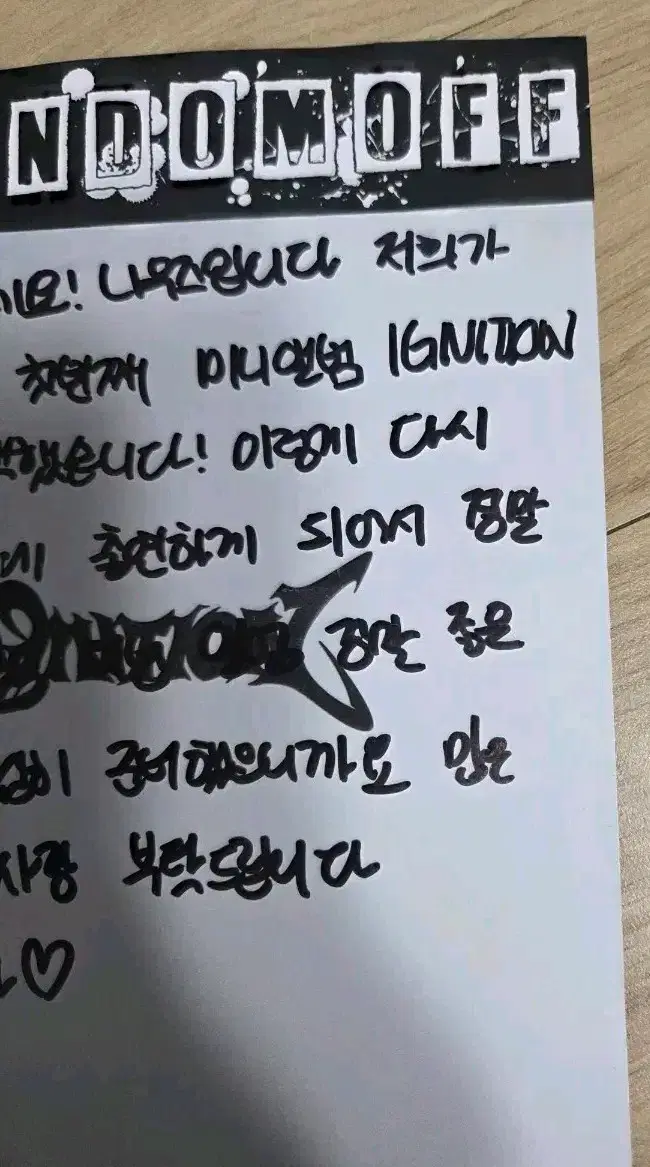 NDOMOFF
요! 나우즈입니다 저희가
첫번째 미니앨범 IGNITION
했습니다! 이렇게 다시
에 출연하게 되어서 정말
정말 좋은
준비했으니까요 많은
사랑 부탁드립니다
♡